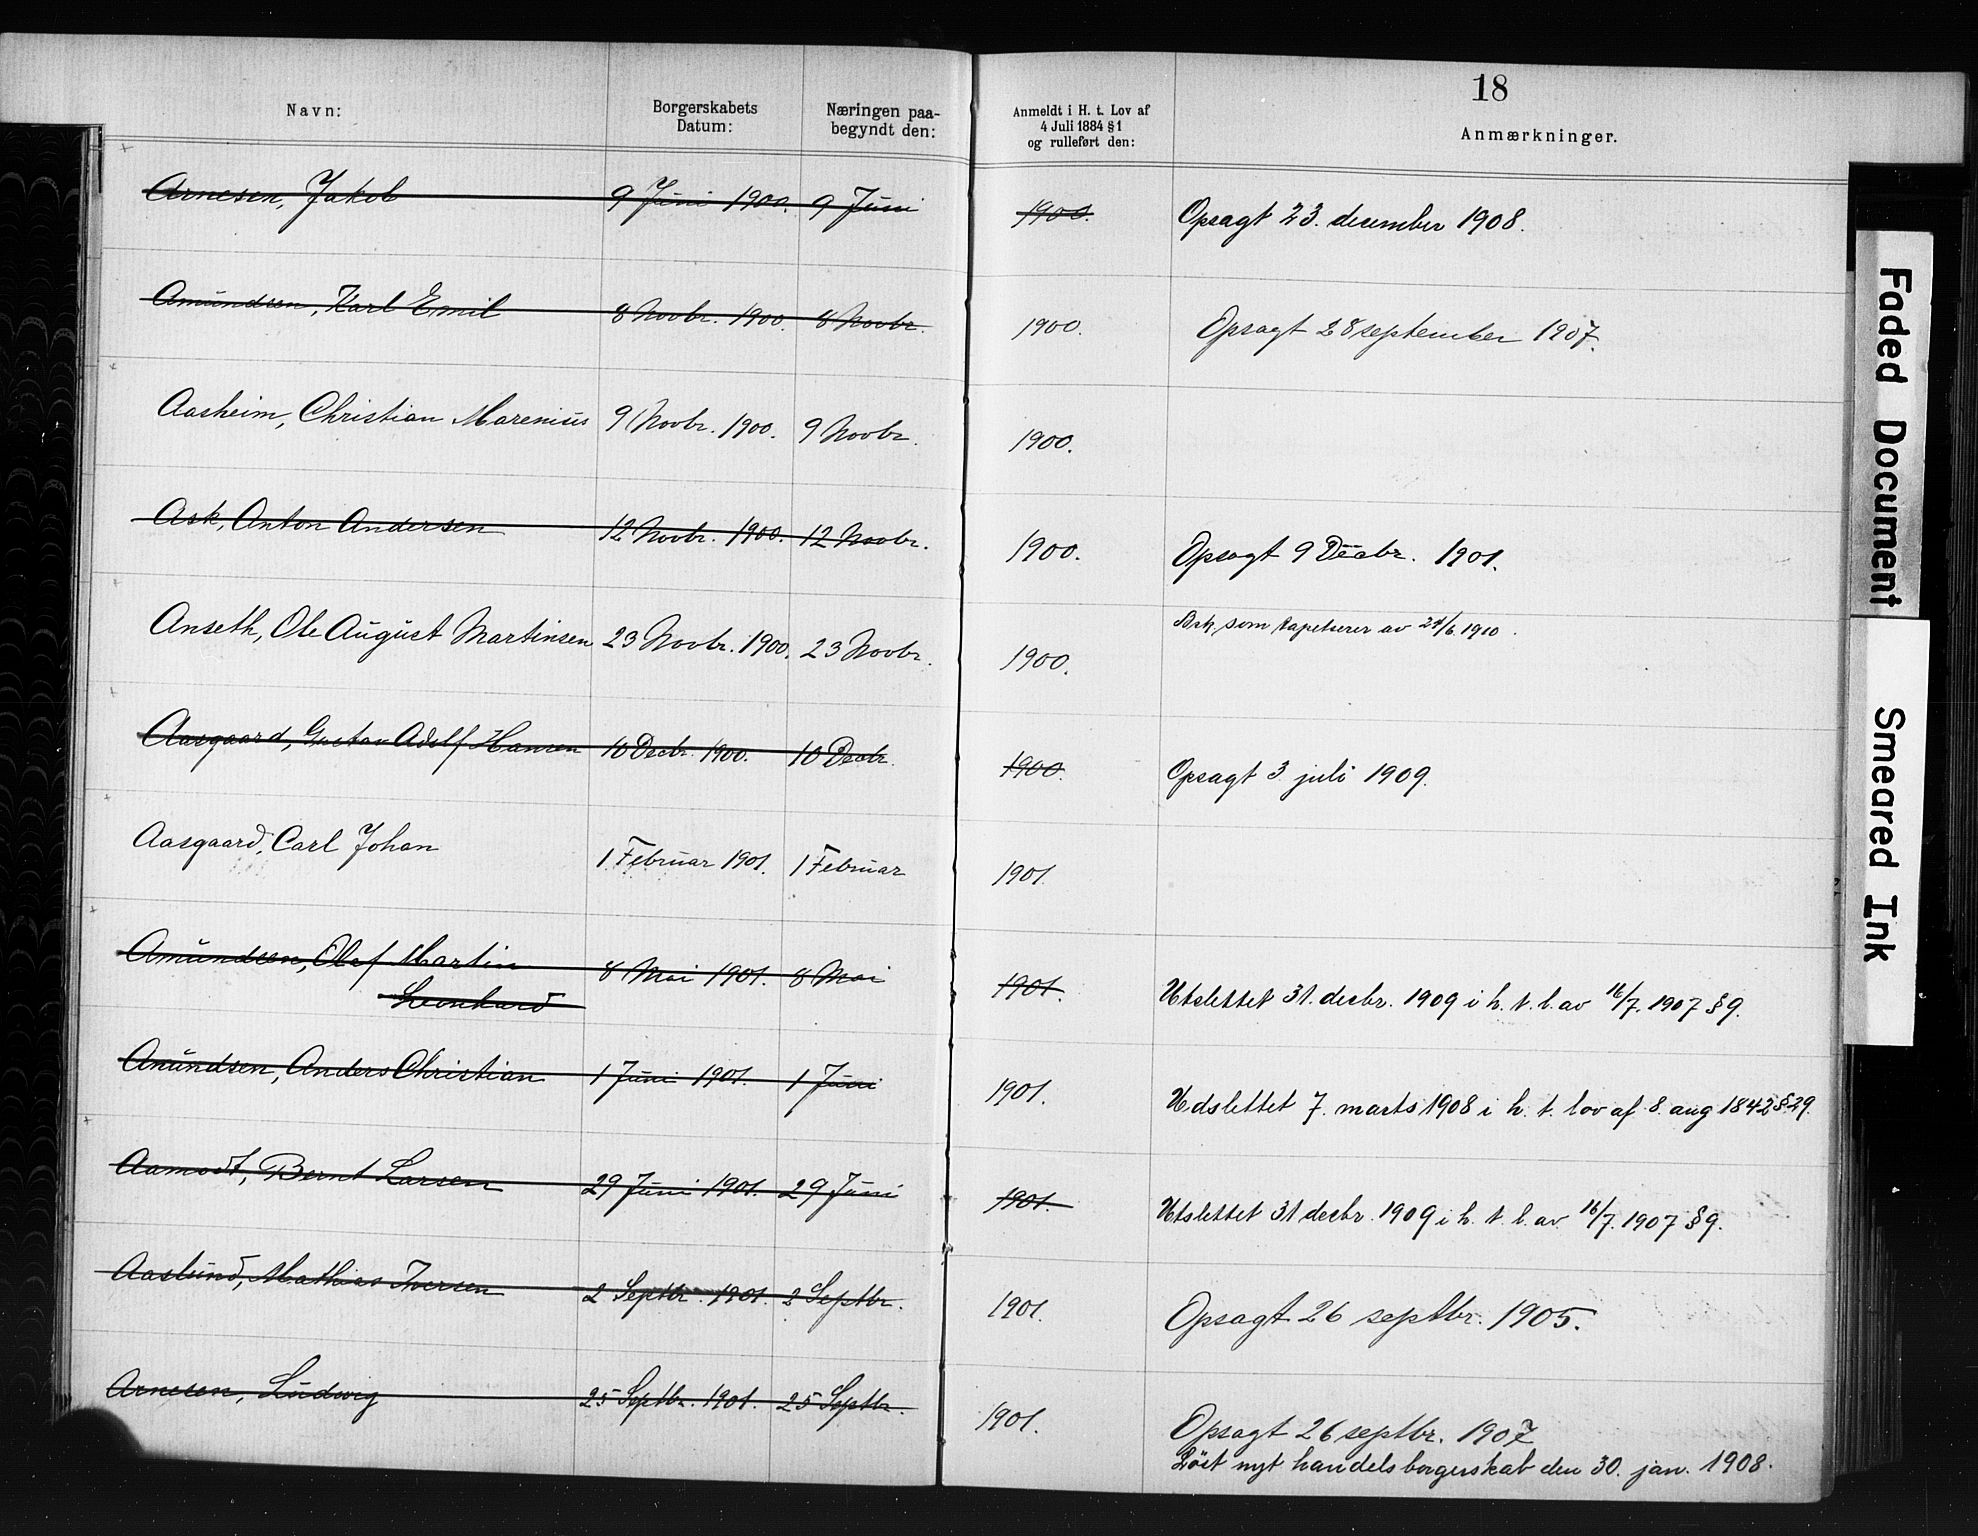 18
Navn: Borgerskabets Datum: Næringen paa-begyndt den: Anmeldt i H. t. Lov af 4 Juli 1884 § 1 og rulleført den: Anmærkninger.
Arnesen, Jakob 9 Juni 1900. 9 Juni 1900. Opsagt 23. desember 1908.
Amundsen, Karl Emil 8 Novbr. 1900. 8 Novbr. 1900. Opsagt 28 september 1907.
Aasheim, Christian Marenius 9 Novbr. 1900. 9 Novbr. 1900.
Ask, Anton Andersen 12 Novbr. 1900. 12 Novbr. 1900. Opsagt 9 Decbr. 1901.
Anseth, Ole August Martinsen 23 Novbr. 1900. 23 Novbr. 1900. som tapetserer av 24/6 1910.
Aasgaard, Gustav Adolf Hansen 10 Decbr. 1900. 10 Decbr. 1900. Opsagt 3 juli 1909.
Aasgaard, Carl Johan 1 Februar 1901. 1 Februar 1901.
Amundsen, Olaf Martin
Leonhard 8 Mai 1901. 8 Mai 1901. Utslettet 31. decbr. 1909 i h. t. l. av 16/7. 1907 § 9.
Amundsen, Anders Christian 1 Juni 1901. 1 Juni 1901. Udslettet 7. marts 1908 i h. t. lov af 8. aug 1842 § 29.
Aamodt, Bernt Larsen 29 Juni 1901. 29 Juni 1901. Utslettet 31 decbr. 1909 i h. t. l. av 16/7. 1907 § 9.
Aaslund, Mathias Iversen 2 Septbr. 1901. 2 Septbr. 1901. Opsagt 26 septbr. 1905.
Arnesen, Ludwig 25 Septbr. 1901. 25 Septbr. 1901. Opsagt 26 septbr. 1907
Löst nyt handelsborgerskab den 30. jan. 1908.
Faded Document
Smeared Ink